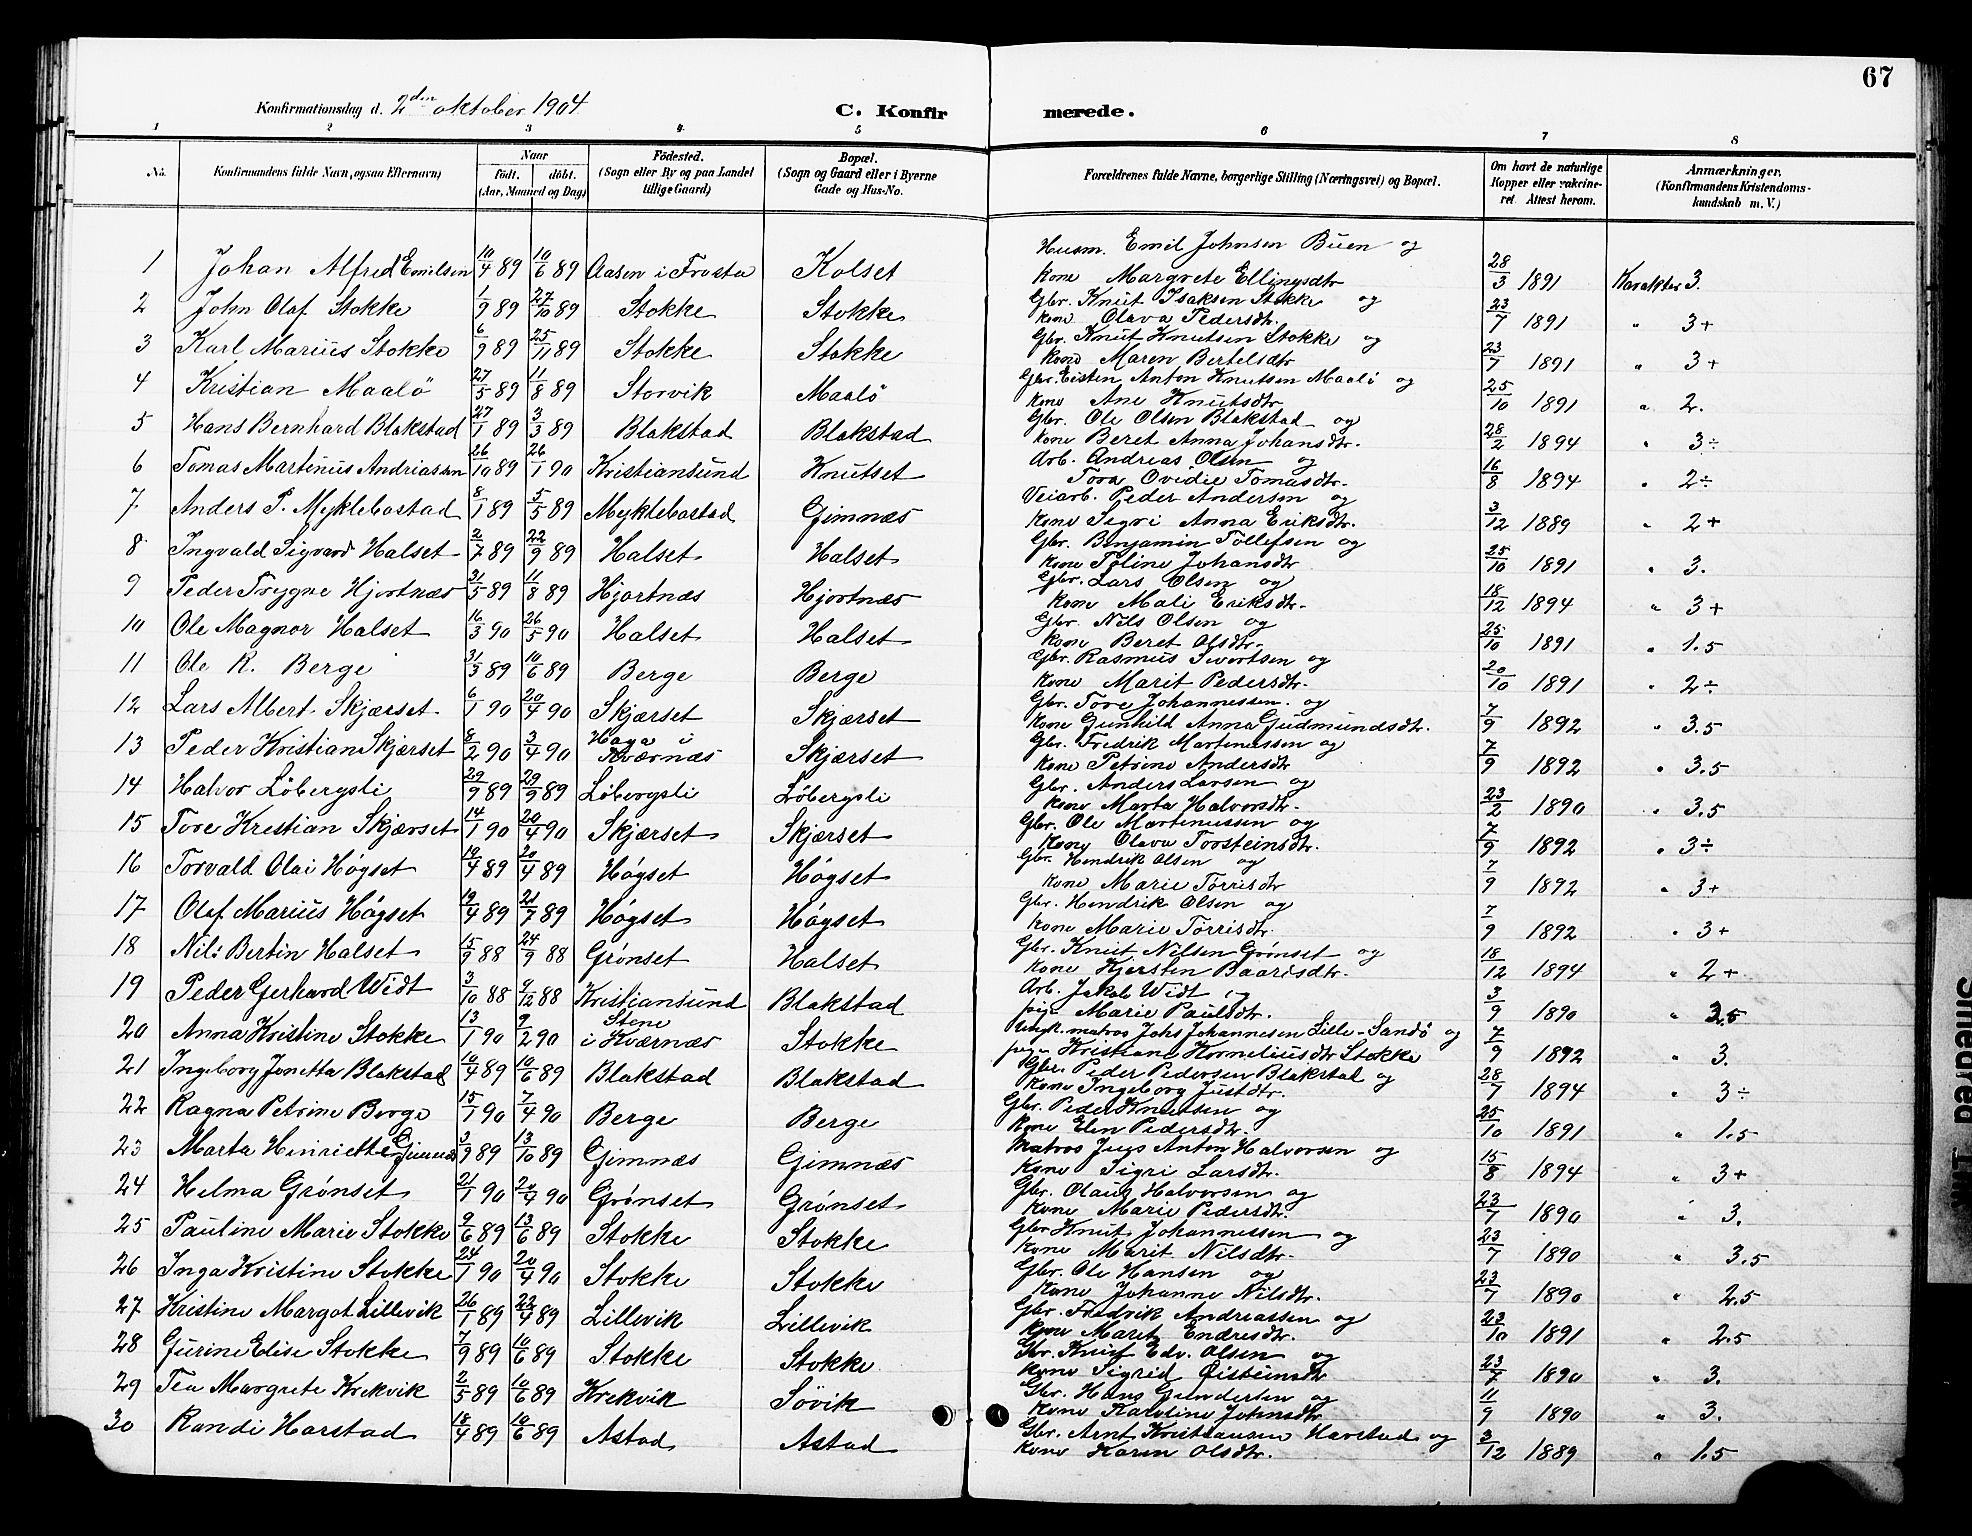 67
Konfirmationsdag d. 2den oktober 1904 C. Konfirmerede.
1 2 3 4 5 6 7 8
No. Konfirmandens fulde Navn, ogsaa Efternavn) Naar født. døbt. (Aar, Maaned og Dag) Fødested. (Sogn eller By og paa Landet tillige Gaard) Bopæl. (Sogn og Gaard eller i Byerne Gade og Hus-No. Forældrenes fulde Navne, borgerlige Stilling (Næringsvei) og Bopæl. Om havt de naturlige Kopper eller vakcineret Attest herom. Anmærkninger. (Konfirmandens Kristendomskundskab m. V.)
1 Johan Alfred Emilsen 10/4 89 10/6 89 Aasen i Frosta Kolset Husm. Emil Johnsen Buen og
kone Margrete Ellingsdtr 28/3 1891 Karakter 3.
2 John Olaf Stokke 1/9 89 27/10 89 Stokke Stokke Gbr. Knut Isaksen Stokke og
kone Olava Pedersdtr. 23/7 1891 " 3+
3 Karl Marius Stokke 6/9 89 25/11 89 Stokke Stokke Gbr. Knut Knutsen Stokke og
kone Maren Bertelsdtr 23/7 1891 " 3+
4 Kristian Maalö 27/5 89 11/8 89 Storvik Maalö Gbr. Eisten Anton Knutsen Maalö og
kone Ane Knutsdtr 25/10 1891 " 2.
5 Hans Bernhard Blakstad 27/1 89 3/3 89 Blakstad Blakstad Gbr. Ole Olsen Blakstad og
kone Beret Anna Johansdtr. 28/2 1894 " 3÷
6 Tomas Martinus Andriassen 26/10 89 26/1 90 Kristiansund Knutset Arb. Andreas Olsen og
Tora Ovidie Tomasdtr. 16/8 1894 " 2÷
7 Anders P. Myklebostad 8/1 89 5/5 89 Myklebostad Gimnæs Veiarb. Peder Andersen og
kone Sigri Anna Eriksdtr. 3/12 1889 " 2+
8 Ingvald Sigvard Halset 2/7 89 22/9 89 Halset Halset Gbr. Benjamin Tollefsen og
kone Toline Johansdtr 25/10 1891 " 3.
9 Peder Trygve Hjortnæs 31/5 89 11/8 89 Hjortnæs Hjortnæs Gbr. Lars Olsen og
kone Mali Eriksdtr. 18/12 1894 " 3+
10 Ole Magnor Halset 16/3 90 26/5 90 Halset Halset Gbr. Nels Olsen og
kone Beret Olsdtr. 25/10 1891 " 1.5
11 Ole R. Berge 31/3 89 10/6 89 Berge Berge Gbr. Rasmus Ivertsen og
kone Marit Pedersdtr. 20/10 1891 " 2÷
12 Lars Albert Skjærset 6/1 90 20/4 90 Skjærset Skjærset Gbr. Tore Johannessen og
kone Gunhild Anna Gudmundsdtr. 7/9 1892 " 3.5
13 Peder Kristian Skjærset 8/2 90 3/4 90 Haga i Kværnæs Skjærset Gbr. Fredrik Martinussen og
kone Petrine Andersdtr 7/9 1892 " 3.5
14 Halvor Löbergsli 29/9 89 29/9 89 Löbergsli Löbergsli Gbr. Anders Larsen og
kone Marta Halvorsdtr. 23/2 1890 " 3.5
15 Tore Kristian Skjærset 14/1 90 20/4 90 Skjærset Skjærset Gbr. Ole Martinussen og
kone Olava Torsteinsdtr. 7/9 1892 " 3÷
16 Torvald Olai Högset 19/4 89 20/4 89 Högset Högset Gbr. Hendrik Olsen og
kone Marie Törrisdtr 7/9 1892 " 3+
17 Olaf Marius Högset 19/4 89 21/7 89 Högset Högset Gbr. Hendrik Olsen og
kone Marie Törrisdtr. 7/9 1892 " 3+
18 Nils Bertin Halset 15/9 88 24/9 88 Grönset Halset Gbr. Knut Nilsen Grönset og
kone Kjersten Baardsdtr. 18/12 1894 " 2+
19 Peder Gerhard Widt 3/10 88 9/12 88 Kristiansund Blakstad Arb. Jakob Widt og
pige Marie Paulsdtr. 3/9 1890 " 2.5
20 Anna Kristine Stokke 13/1 90 9/2 90 Stene i Kværnæs Stokke Ungk. matros Johs Johannesen Lille-Sandö og
pige Kristiane Kornelius dtr Stokke 7/9 1892 " 3.
21 Ingeborg Jonetta Blakstad 10/4 89 10/6 89 Blakstad Blakstad Gbr. Peder Pedersen Blakstad og
kone Ingeborg Justdtr. 28/7 1894 " 3÷
22 Ragna Petrine Berge 15/1 90 7/4 90 Berge Berge Gbr. Peder Knutsen og
kone Elen Pedersdtr. 25/10 1891 " 1.5
23 Marta Henriette Gimnæs 3/9 89 13/10 89 Gimnæs Gimnæs Matros Jens Anton Halvorsen og
kone Sigri Larsdtr. 15/8 1894 " 3+
24 Helma Grönset 21/1 90 20/4 90 Grönset Grönset Gbr. Olaus Halvorsen og
kone Marie Pedersdtr. 23/7 1890 " 3.
25 Pauline Marie Stokke 9/6 89 13/6 89 Stokke Stokke Gbr Knut Johannessen og
kone Marit Nilsdtr. 23/7 1890 " 3.5
26 Inga Kristine Stokke 24/1 90 20/4 90 Stokke Stokke Gbr. Ole Hansen og
kone Johanne Nilsdtr. 23/7 1890 " 2.5
27 Kristine Margot Lillevik 26/1 89 22/4 89 Lillevik Lillevik Gbr. Fredrik Andreassen og
kone Maret Endresdtr. 23/10 1891 " 2.5
28 Gurine Elise Stokke 7/9 89 10/6 89 Stokke Stokke Gbr. Knut Edv. Olsen og
kone Sigrid Øisteinsdtr 23/7 1890 " 3.
29 Tea Margrete Krekvik 2/5 89 10/6 89 Krekvik Sövik Gbr. Hans Gundersen og
kone Karoline Johnsdtr 11/9 1890 " 3.
30 Randi Harstad 18/4 89 10/6 89 Astad Astad Gbr. Arnt Kristiansen Harstad og
kone Karen Olsdtr. 3/12 1889 " 1.5